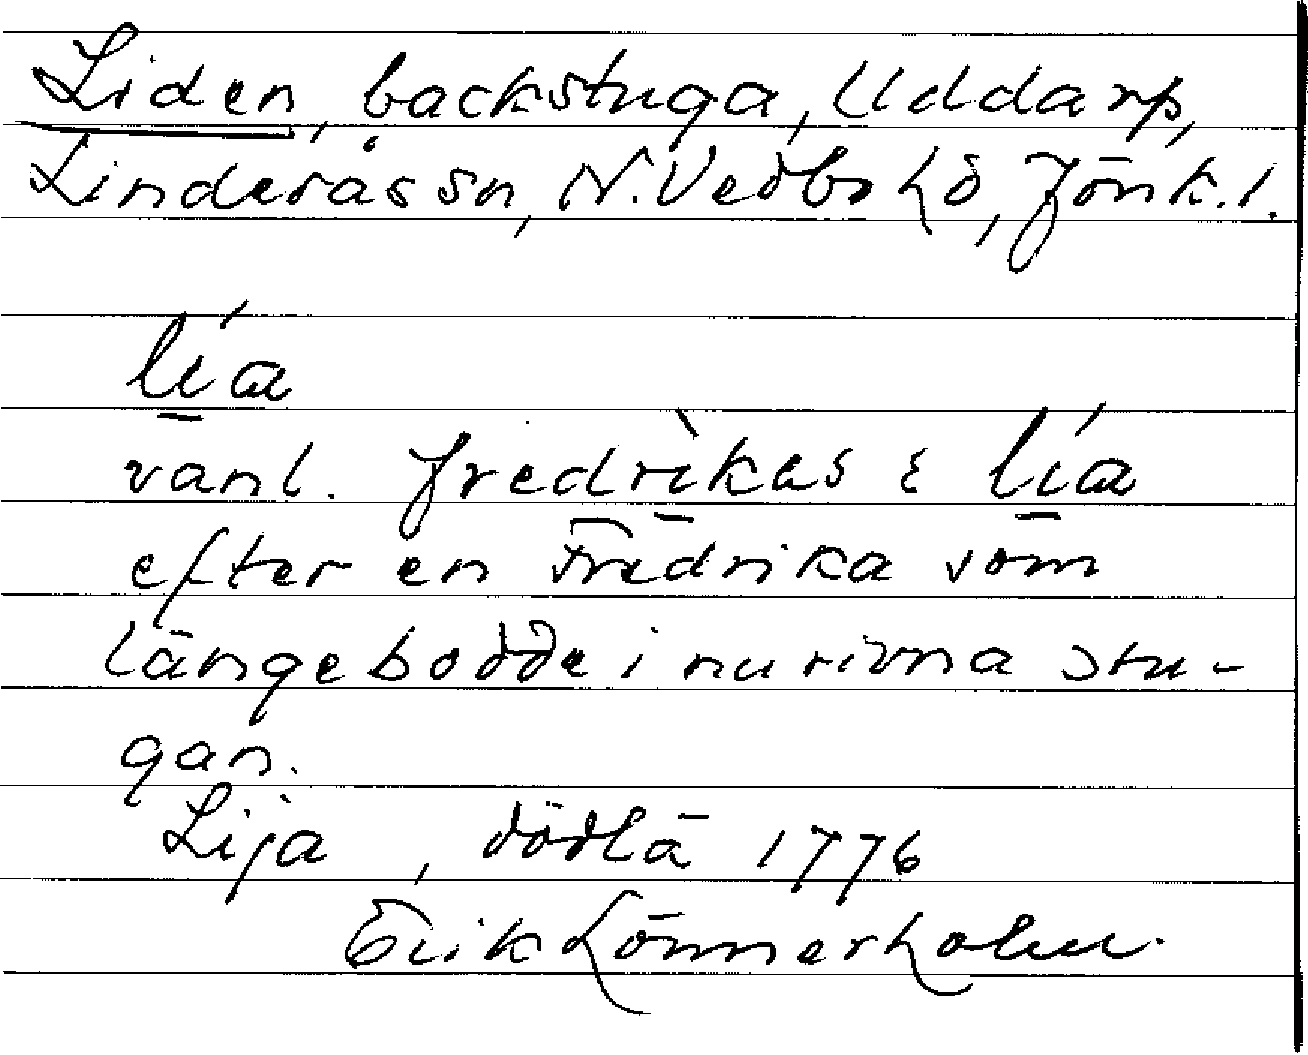 Liden, backstuga, Uddarp,
Linderås sn, N. Vedbo hd, Jönk. l.
lía
vanl. fredrìkas i lía
efter en Fredrika som
länge bodde i nu rivna stu-
gan.
Lija, dödlä 1776
Erik Lönnerholm.